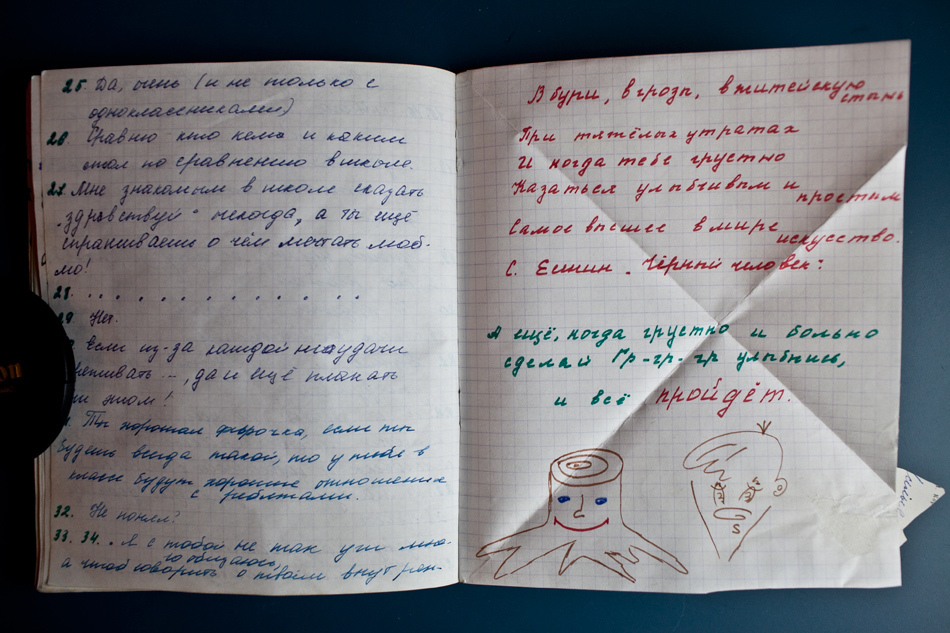 25. Да, очень (и не только с
одноклассниками)
26. Сравню кто кем и каким
стал по сравнению в школе.
27. Мне знакомым в школе сказать
"здравствуй" некогда, а ты ещё
спрашиваешь о чём мечтать люб-
лю!
28. . . . . . . . . . . . .
29 Нет.
если из-за каждой неудачи
, да и ещё плакать
при этом!
Ты хорошая девочка, если ты
будешь всегда такой, то у тебя в
классе будут хорошие отношения
с ребятами.
32. Не понял?
33. 34. Я с тобой не так уж мно-
го общаюсь,
а чтоб говорить о твоём внутрен-
В бури, в грозы, в житейскую
стынь
При тяжёлых утратах
И когда тебе грустно
Казаться улыбчивым и
простым
Самое высшее в мире
искусство.
С. Есенин. Чёрный человек:
А ещё, когда грустно и больно
сделай Гр-гр-гр улыбнись,
и всё пройдёт.